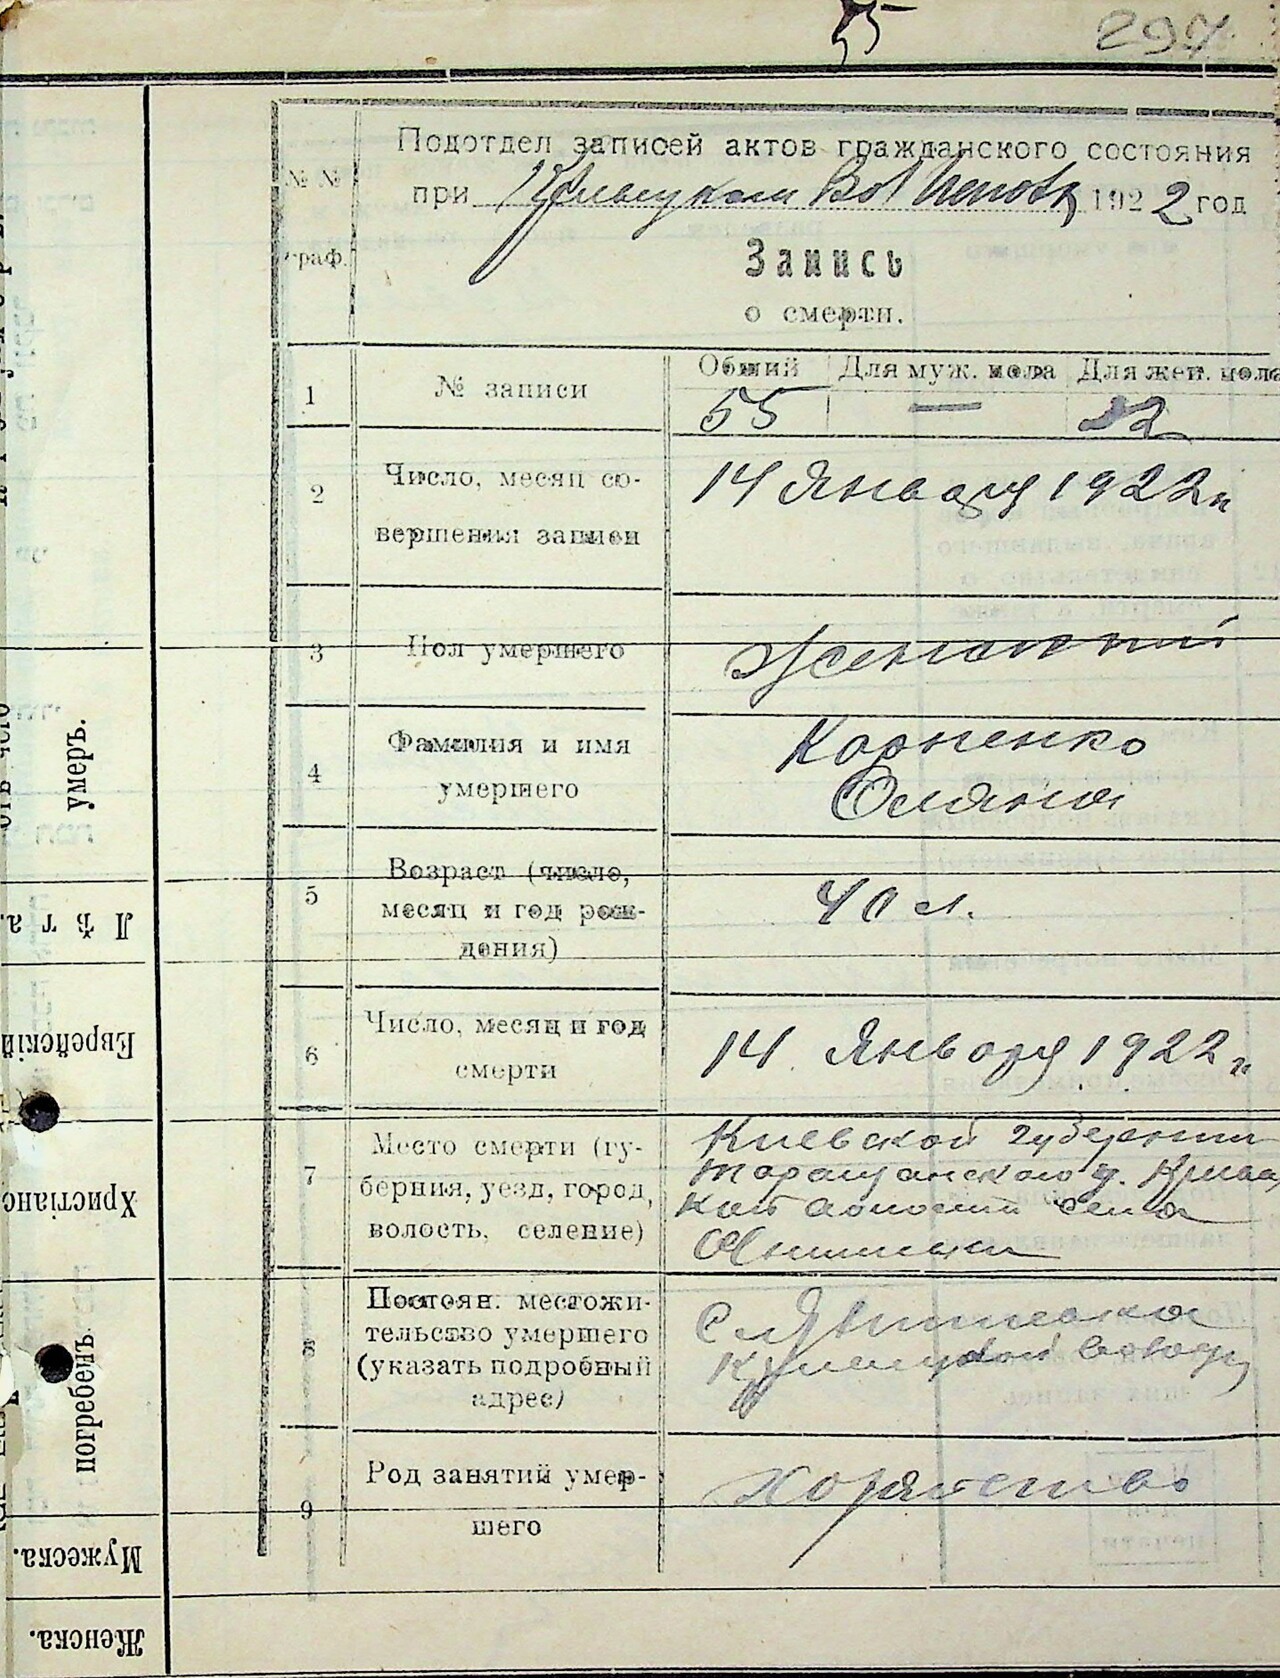 55
297
Подотдел записей актов гражданского состояния
при 1922 год
№№
граф.
Запись
о смерти.
1
№ записи
Общий Для муж. пола Для жен. пола
55 — 22
2
Число, месяц со-
вершения записи
14 Января 1922 г.
3
Пол умершего
Женский
4
Фамилия и имя
умершего
Карпенко
Оляна
5
Возраст (число,
месяц и год рож-
дения)
40 л.
6
Число, месяц и год
смерти
14 Января 1922 г.
7
Место смерти (гу-
берния, уезд, город,
волость, селение)
Киевской губернии
Таращанского у.
волости села
8
Постоян. местожи-
тельство умершего
(указать подробный
адрес)
9
Род занятий умер-
шего
умеръ.
Лѣта.
Еврейскій
Христіанс
погребенъ
Мужеска.
Женска.